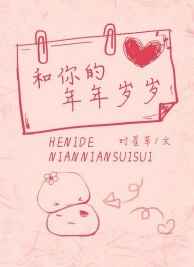 和你的
年年岁岁
HENIDE
NIANNIANSUISUI